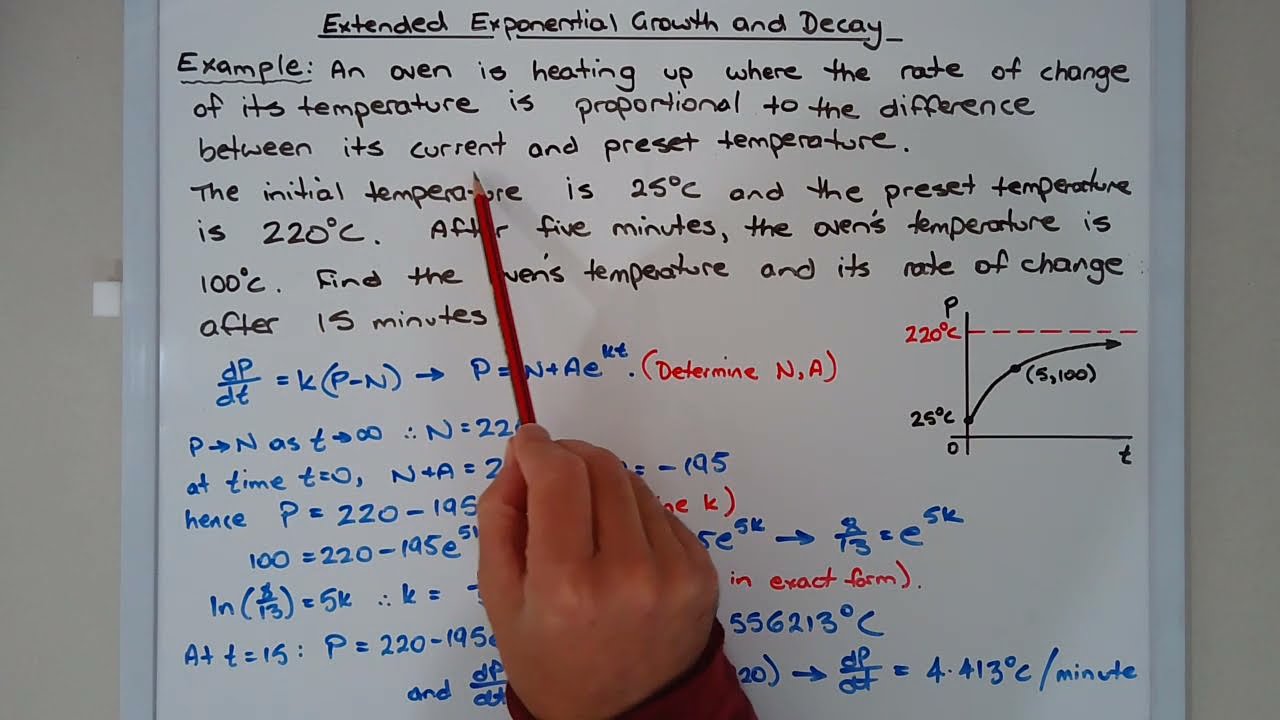 Extended Exponential Growth and Decay
Example: An oven is heating up where the rate of change
of its temperature is proportional to the difference
between its current and preset temperature.
The initial temperature is 25°C and the preset temperature
is 220°C. After five minutes, the oven's temperature is
100°C. Find the oven's temperature and its rate of change
after 15 minutes
dP/dt = k(P-N) → P = N+Ae^kt. (Determine N, A)
P→N as t→∞ ∴ N = 22
at time t=0, N+A = 2 = -195
hence P = 220 - 195 k)
100 = 220 - 195e^5k 5e^5k → 8/13 = e^5k
ln(8/13) = 5k ∴ k = in exact form).
At t=15: P = 220 - 195e 556213°C
and dP/dt 20) → dP/dt = 4.413°C/minute
P
220°C
(5,100)
25°C
0
t